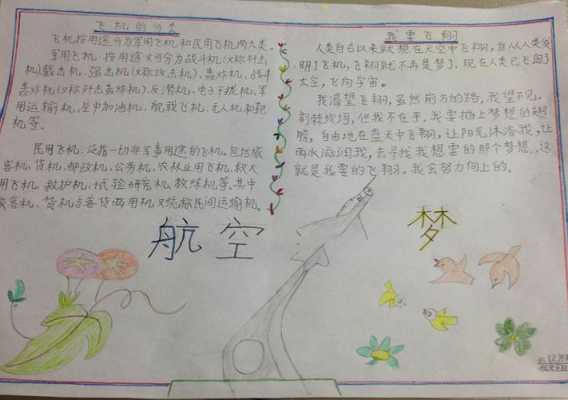 飞机的分类
飞机按用途分为军用飞机和民用飞机两大类。
军用飞机,按用途又可分为战斗机(又称歼击
机)截击机、强击机(又称攻击机)、轰炸机、战斗
轰炸机(又称歼击轰炸机)、反潜机、电子干扰机、军
用运输机、空中加油机、舰载飞机、无人机和靶
机等。
民用飞机,泛指一切非军事用途的飞机,包括旅
客机、货机、邮政机、公务机、农林业用飞机、救火
用飞机、救护机、试验研究机、教练机等。其中
旅客机、货机与客货两用机又统称民间运输机。
我要飞翔
人类自古以来就想在天空中飞翔,自从人类发
明了飞机,飞翔就不再是梦了。现在人类已飞向了
太空,飞向宇宙。
我渴望飞翔,虽然前方的路,我望不见,
荆棘坎坷,但我不在乎,我要插上梦想的翅
膀,自由地在蓝天中飞翔,让阳光沐浴我,让
雨水滋润我,去寻找我想要的那个梦想,这
就是我要的飞翔。我会努力向上的。
航空
梦